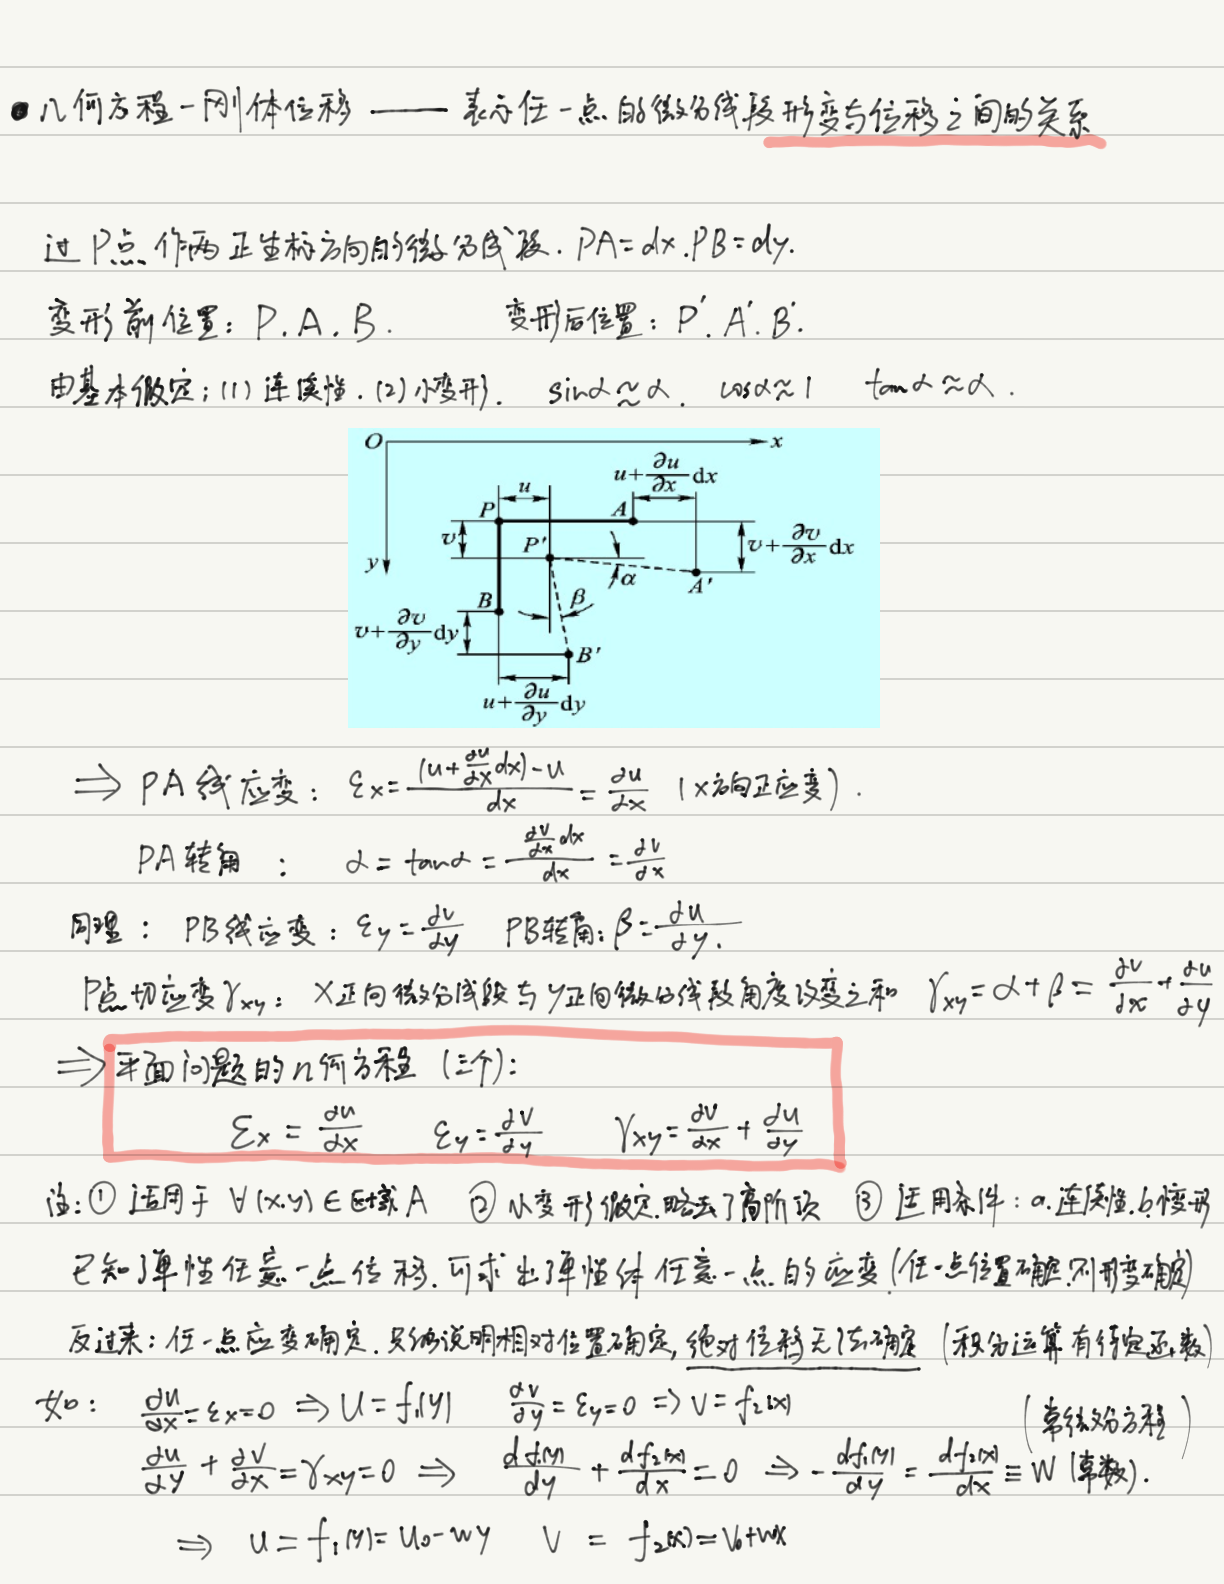 几何方程-刚体位移 —— 表示任一点的微分线段形变与位移之间的关系
过P点作两正坐标方向的微分线段. PA=dx.PB=dy.
变形前位置: P.A.B. 变形后位置: P'.A'.B'.
由基本假定: (1) 连续性. (2) 小变形. sinα≈α. cosα≈1 tanα≈α.
O x
u+∂u/∂x dx
u
P A
v P' v+∂v/∂x dx
y α A'
B β
v+∂v/∂y dy
B'
u+∂u/∂y dy
⇒ PA线应变: εx=((u+∂u/∂x dx)-u)/dx=∂u/∂x (x方向正应变).
PA转角: α=tanα=(∂v/∂x dx)/dx=∂v/∂x
同理: PB线应变: εy=∂v/∂y PB转角: β=∂u/∂y.
P点切应变γxy: X正向微分线段与y正向微分线段角度改变之和 γxy=α+β=∂v/∂x+∂u/∂y
⇒平面问题的几何方程 (三个):
εx=∂u/∂x εy=∂v/∂y γxy=∂v/∂x+∂u/∂y
注:① 适用于 ∀(x.y)∈区域A ② 小变形假定.略去了高阶项 ③ 适用条件: a.连续性.b.小变形
已知弹性任意一点位移.可求出弹性体任意一点的应变(任一点位置确定.则形变确定)
反过来: 任一点应变确定.只能说明相对位置确定,绝对位移无法确定 (积分运算有待定函数)
如: ∂u/∂x=εx=0 ⇒ U=f₁(y) ∂v/∂y=εy=0 ⇒ V=f₂(x) (常微分方程)
∂u/∂y+∂v/∂x=γxy=0 ⇒ df₁(y)/dy+df₂(x)/dx=0 ⇒ -df₁(y)/dy=df₂(x)/dx≡W (常数).
⇒ u=f₁(y)=u₀-wy V = f₂(x)=V₀+wx